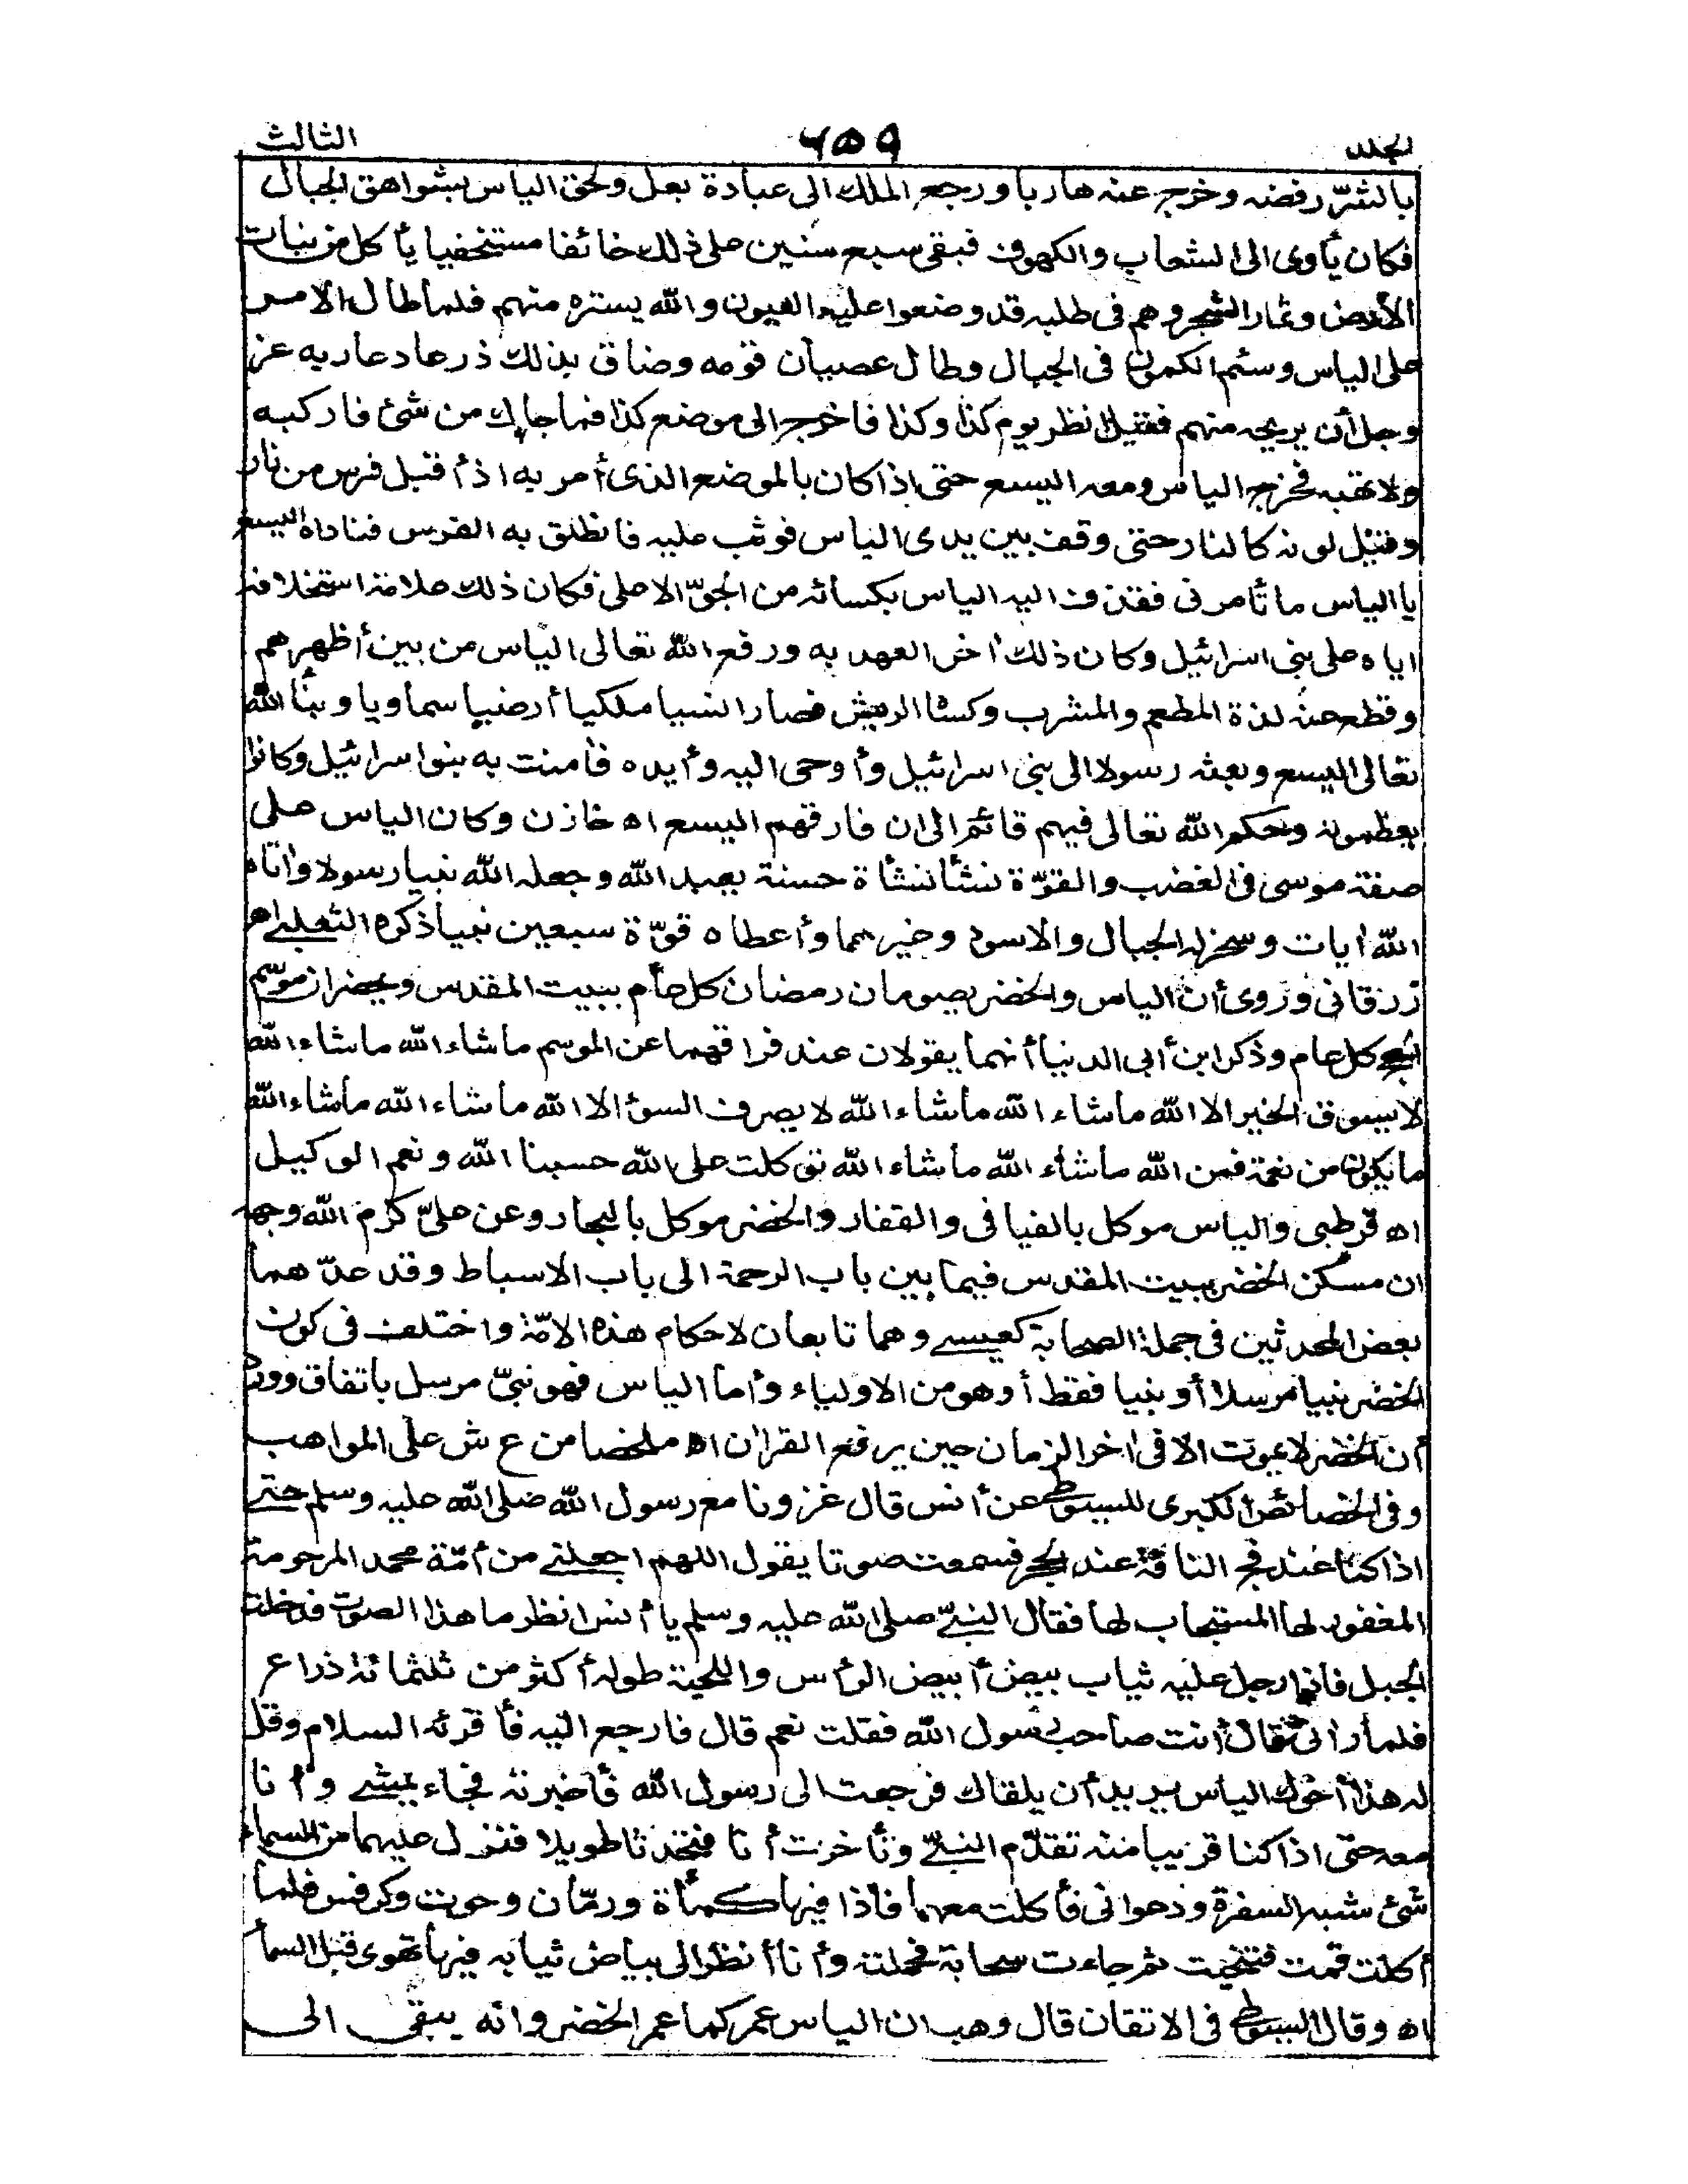 الجلد ٦٥٩ الثالث
بالشرّ رفضه وخرج عنه هاربا ورجع الملك الى عبادة بعل ولحق الياس بشواهق الجبال
فكان يأوى الى الشعاب والكهوف فبقى سبع سنين على ذلك خائفا مستخفيا يأكل من نبات
الأرض وثمار الشجر وهم فى طلبه قد وضعوا عليه العيون والله يستره منهم فلما طال الامر
على الياس وسئم الكمون فى الجبال وطال عصيان قومه وضاق بذلك ذرعا دعا ربه عز
وجل أن يريحه منهم فقيل انظر يوم كذا وكذا فاخرج الى موضع كذا فما جاءك من شئ فاركبه
ولا تهبه فخرج الياس ومعه اليسع حتى اذا كان بالموضع الذى أمر به اذ أقبل فرس من نار
وقيل لونه كالنار حتى وقف بين يدى الياس فوثب عليه فانطلق به الفرس فناداه اليسع
يا الياس ما تأمرنى فقذف اليه الياس بكسائه من الجوّ الاعلى فكان ذلك علامة استخلافه
اياه على بنى اسرائيل وكان ذلك أخر العهد به ورفع الله تعالى الياس من بين أظهرهم
وقطع عنه لذة المطعم والمشرب وكساه الريش فصار انسيا ملكيا أرضيا سماويا ونبأ الله
تعالى اليسع وبعثه رسولا الى بنى اسرائيل وأوحى اليه وأيده فأمنت به بنوا سرائيل وكانوا
يعظمونه وحكم الله تعالى فيهم قائم الى ان فارقهم اليسع اه خازن وكان الياس على
صفة موسى فى الغضب والقوّة نشأ نشأة حسنة يعبد الله وجعله الله نبيا رسولا وأتاه
الله أيات وسخر له الجبال والاسود وغيرهما وأعطاه قوّة سبعين نبيا ذكره الثعلبى اه
زرقانى وروى أن الياس والخضر يصومان رمضان كل عام ببيت المقدس ويحضران موسم
الحج كل عام وذكر ابن أبى الدنيا أنهما يقولان عند فراقهما عن الموسم ما شاء الله ما شاء الله
لا يسوق الخير الا الله ما شاء الله ما شاء الله لا يصرف السوء الا الله ما شاء الله ما شاء الله
ما يكون من نعمة فمن الله ما شاء الله ما شاء الله توكلت على الله حسبنا الله ونعم الوكيل
اه قرطبى والياس موكل بالفيافى والقفار والخضر موكل بالبحار وعن علىّ كرّم الله وجهه
ان مسكن الخضر ببيت المقدس فيما بين باب الرحمة الى باب الاسباط وقد عدّهما
بعض المحدثين فى جملة الصحابة كعيسى وهما تابعان لاحكام هذه الامّة واختلف فى كون
الخضر نبيا مرسلا أو نبيا فقط أو هو من الاولياء وأما الياس فهو نبىّ مرسل باتفاق وورد
أن الخضر لا يموت الا فى أخر الزمان حين يرفع القرأن اه ملخصا من ع ش على المواهب
وفى الخصائص الكبرى للسيوطى عن أنس قال غزونا مع رسول الله صلى الله عليه وسلم حتى
اذا كنا عند فج الناقة عند الحجر فسمعت صوتا يقول اللهم اجعلنى من أمّة محمد المرحومة
المغفور لها المستجاب لها فقال النبىّ صلى الله عليه وسلم يا أنس انظر ما هذا الصوت فدخلت
الجبل فاذا رجل عليه ثياب بيض أبيض الرأس واللحية طوله أكثر من ثلثمائة ذراع
فلما رأنى قال أنت صاحب رسول الله فقلت نعم قال فارجع اليه فأقرئه السلام وقل
له هذا أخوك الياس يريد أن يلقاك فرجعت الى رسول الله فأخبرته فجاء يمشى وأنا
معه حتى اذا كنا قريبا منه تقدّم النبىّ وتأخرت أنا فتحدثا طويلا فنزل عليهما من السماء
شئ شبه السفرة ودعوانى فأكلت معهما فاذا فيها كمأة ورمّان وحوت وكرفس فلما
أكلت قمت فتنحيت ثم جاءت سحابة فحملته وأنا أنظر الى بياض ثيابه فيها تهوى قبل السماء
اه وقال السيوطى فى الاتقان قال وهب ان الياس عمر كما عمر الخضر وانه يبقى الى